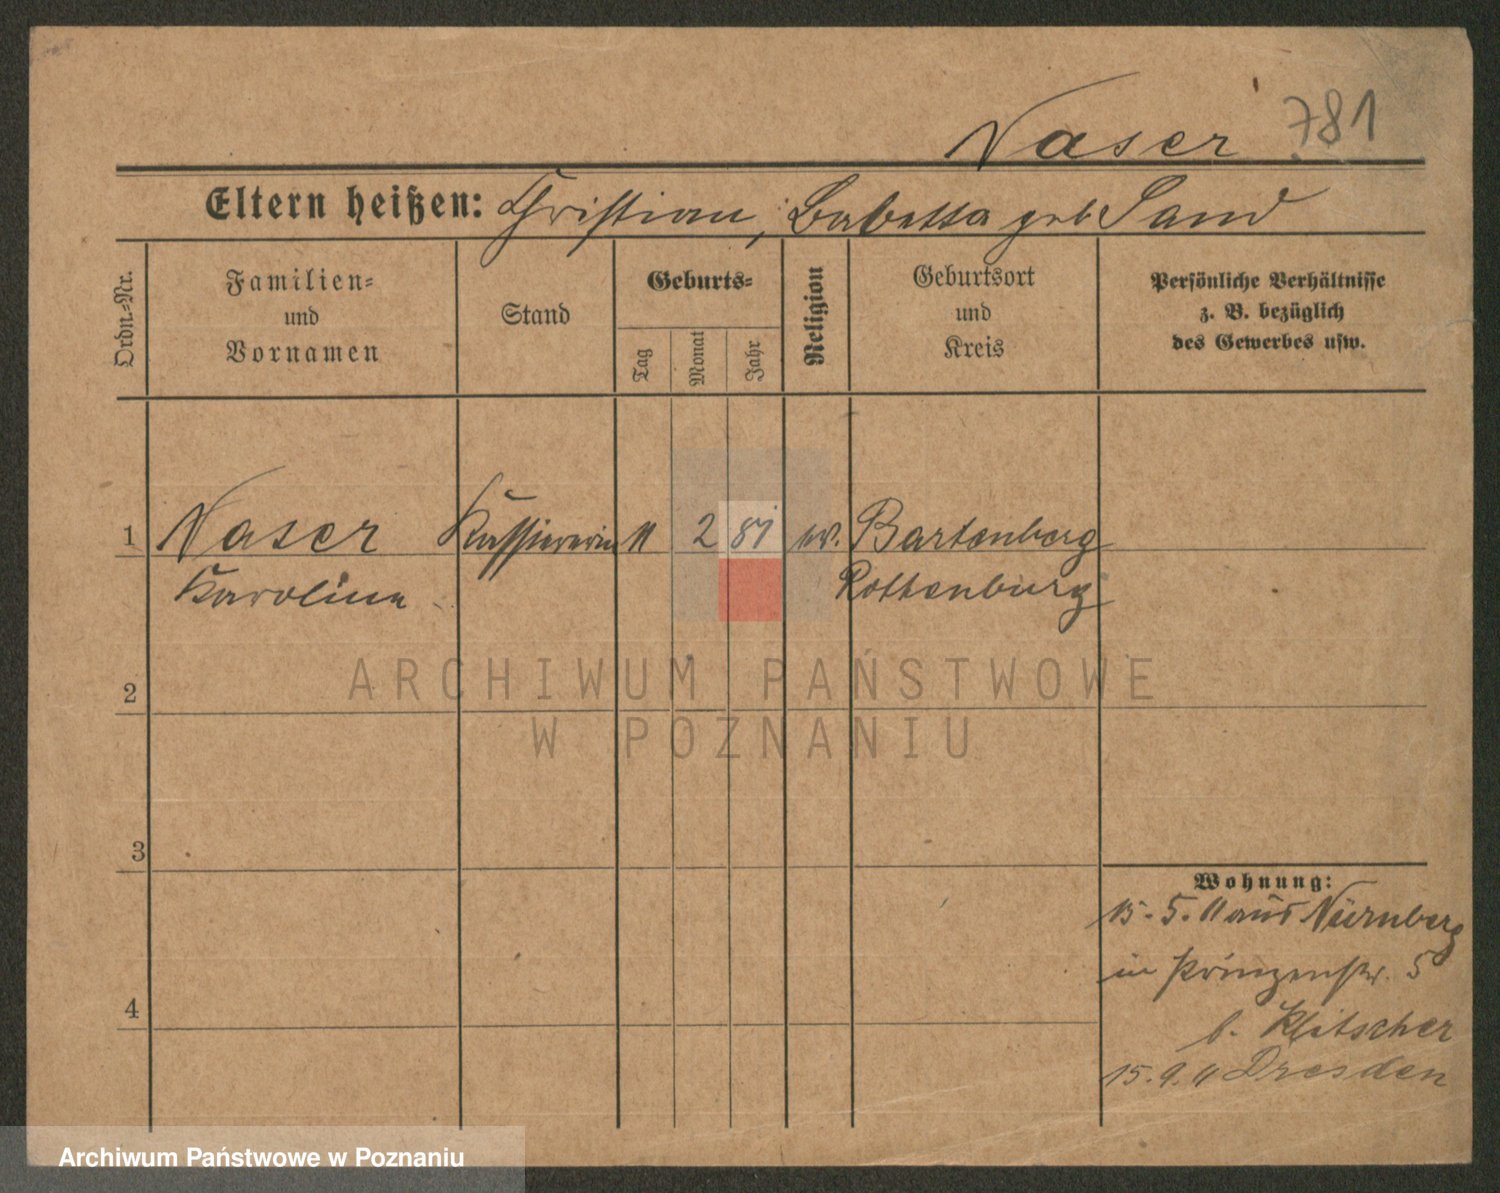 Naser 781
Eltern heißen: Christian, Babetta geb Sand
Ordn.-Nr.
Familien-
und
Vornamen
Stand
Geburts-
Tag
Monat
Jahr
Religion
Geburtsort
und
Kreis
Persönliche Verhältnisse
z. B. bezüglich
des Gewerbes usw.
1 Naser Kassiererin 11 2 81 ev. Bartenberg
Karolina Rottenburg
ARCHIWUM PAŃSTWOWE
2
W POZNANIU
3
Wohnung:
15.5.11 aus Nürnberg
in Prinzenstr. 5
4
b. Klitscher
15.9.11 Dresden
Archiwum Państwowe w Poznaniu